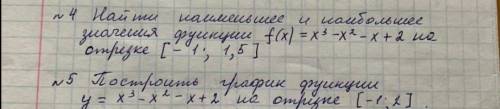 №4 Найти наименьшее и наибольшее
значения функции f(x) = x³-x²-x+2 на
отрезке [-1; 1,5]
№5 Построить график функции
y = x³-x²-x+2 на отрезке [-1;2]